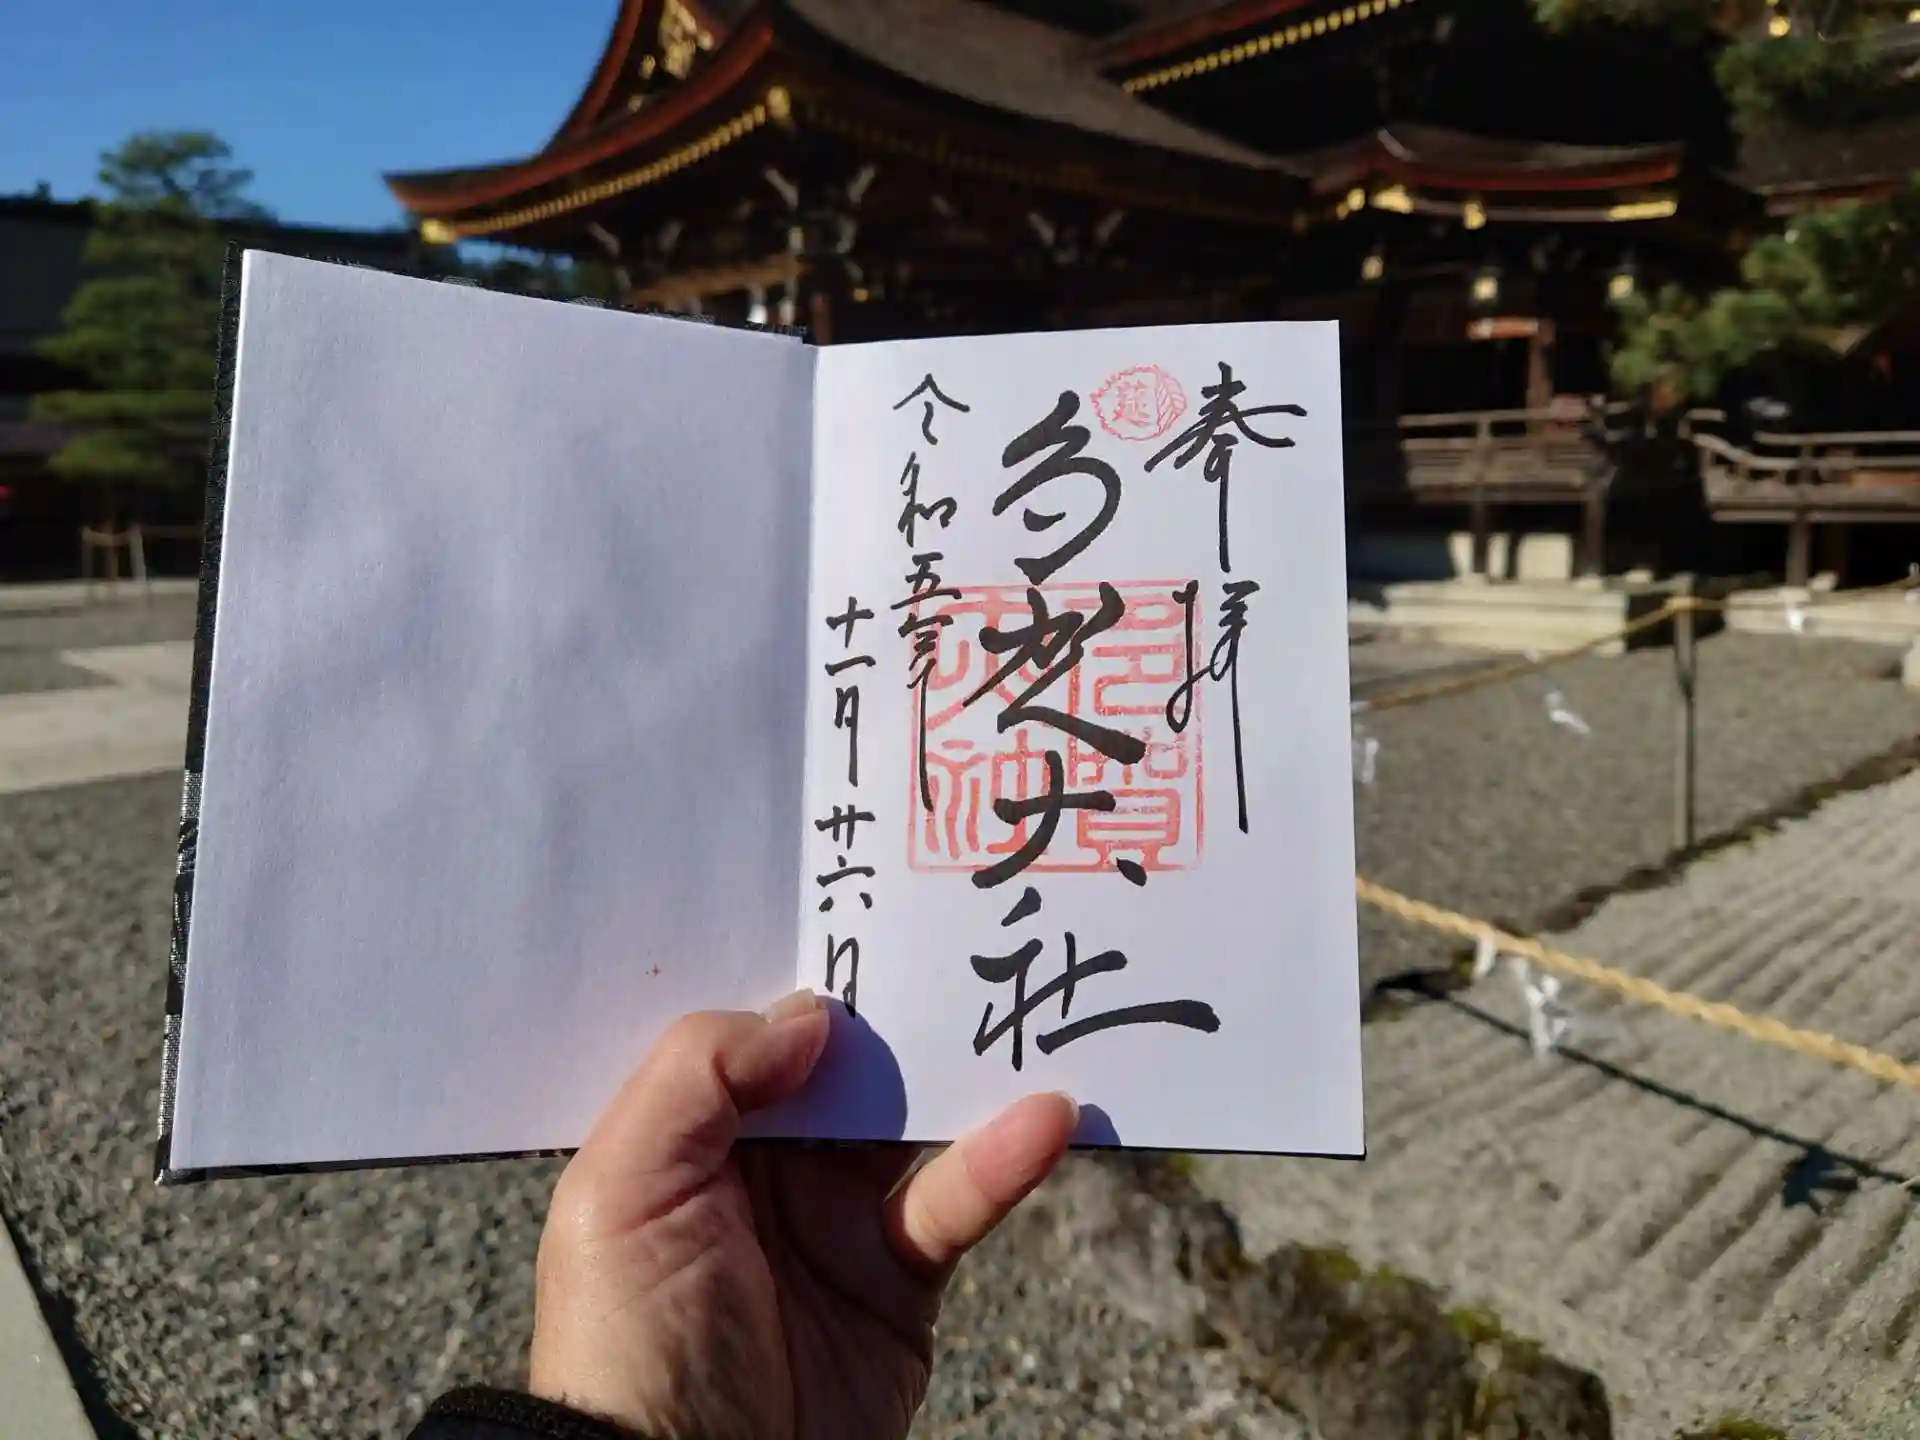 奉拝
莚
多賀大社
多賀大社
令和五年
十一月廿六日